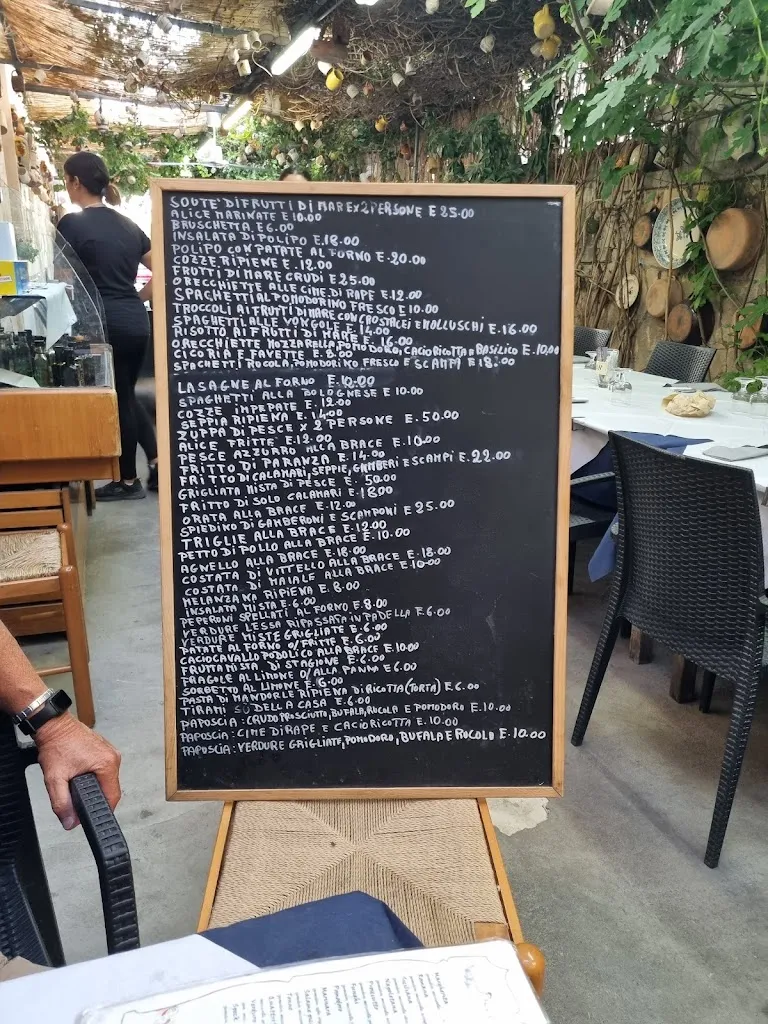 SOUTE' DI FRUTTI DI MARE X 2 PERSONE E 25.00
ALICE MARINATE E 10.00
BRUSCHETTA E 6.00
INSALATA DI POLIPO E.18.00
POLIPO CON PATATE AL FORNO E.20.00
COZZE RIPIENE E.12.00
FRUTTI DI MARE CRUDI E 25.00
ORECCHIETTE ALLE CIME DI RAPE E.12.00
SPAGHETTI AL POMODORINO FRESCO E 10.00
TROCCOLI AI FRUTTI DI MARE CON CROSTACEI E MOLLUSCHI E.16.00
SPAGHETTI ALLE VONGOLE E.14.00
RISOTTO AI FRUTTI DI MARE E.16.00
ORECCHIETTE MOZZARELLA, POMODORO, CACIORICOTTA E BASILICO E.10,00
CICORIA E FAVETTE E.8.00
SPACHETTI RUCOLA, POMODORINO FRESCO E SCAMPI E 18.00
LASAGNE AL FORNO E.10.00
SPAGHETTI ALLA BOLOGNESE E 10.00
COZZE IMPEPATE E.12.00
SEPPIA RIPIENA E.14.00
ZUPPA DI PESCE X 2 PERSONE E.50.00
ALICE FRITTE E.12.00
PESCE AZZURRO ALLA BRACE E.10.00
FRITTO DI PARANZA E.14.00
FRITTO DI CALAMARI, SEPPIE, GAMBERI E SCAMPI E.22.00
GRIGLIATA MISTA DI PESCE E.50.00
FRITTO DI SOLO CALAMARI E 18.00
ORATA ALLA BRACE E.12.00
SPIEDINO DI GAMBERONI E SCAMPONI E 25.00
TRIGLIE ALLA BRACE E.12.00
PETTO DI POLLO ALLA BRACE E.10.00
AGNELLO ALLA BRACE E.18.00
COSTATA DI VITTELLO ALLA BRACE E.18.00
COSTATA DI MAIALE ALLA BRACE E 10.00
MELANZANA RIPIENA E.8.00
INSALATA MISTA E.6.00
PEPERONI SPELLATI AL FORNO E.8.00
VERDURE LESSA RIPASSATA IN PADELLA E.6.00
VERDURE MISTE GRIGLIATE E.6.00
PATATE AL FORNO O/FRITTE E.6.00
CACIOCAVALLO PODOLICO ALLA BRACE E.10.00
FRUTTA MISTA DI STAGIONE E.6.00
FRAGOLE AL LIMONE O/ALLA PANNA E 6.00
SORBETTO AL LIMONE E.6.00
PASTA DI MANDORLE RIPIENA DI RICOTTA (TORTA) E.6.00
TIRAMI SU DELLA CASA E.6.00
PAPOSCIA: CRUDO PROSCIUTTO, BUFALA, RUCOLA E POMODORO E.10.00
PAPOSCIA: CIME DI RAPE E CACIO RICOTTA E.10.00
PAPOSCIA: VERDURE GRIGLIATE, POMODORO, BUFALA E RUCOLA E.10.00